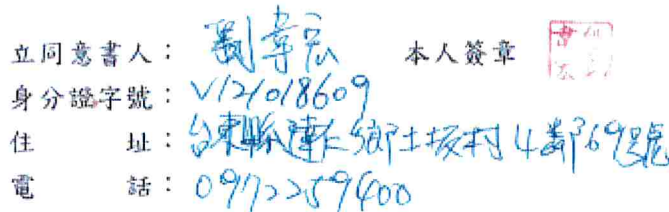 立同意書人：劉韋宏 本人簽章
身分證字號：V121018609
住 址：台東縣達仁鄉土坂村4鄰69號
電 話：0972259400